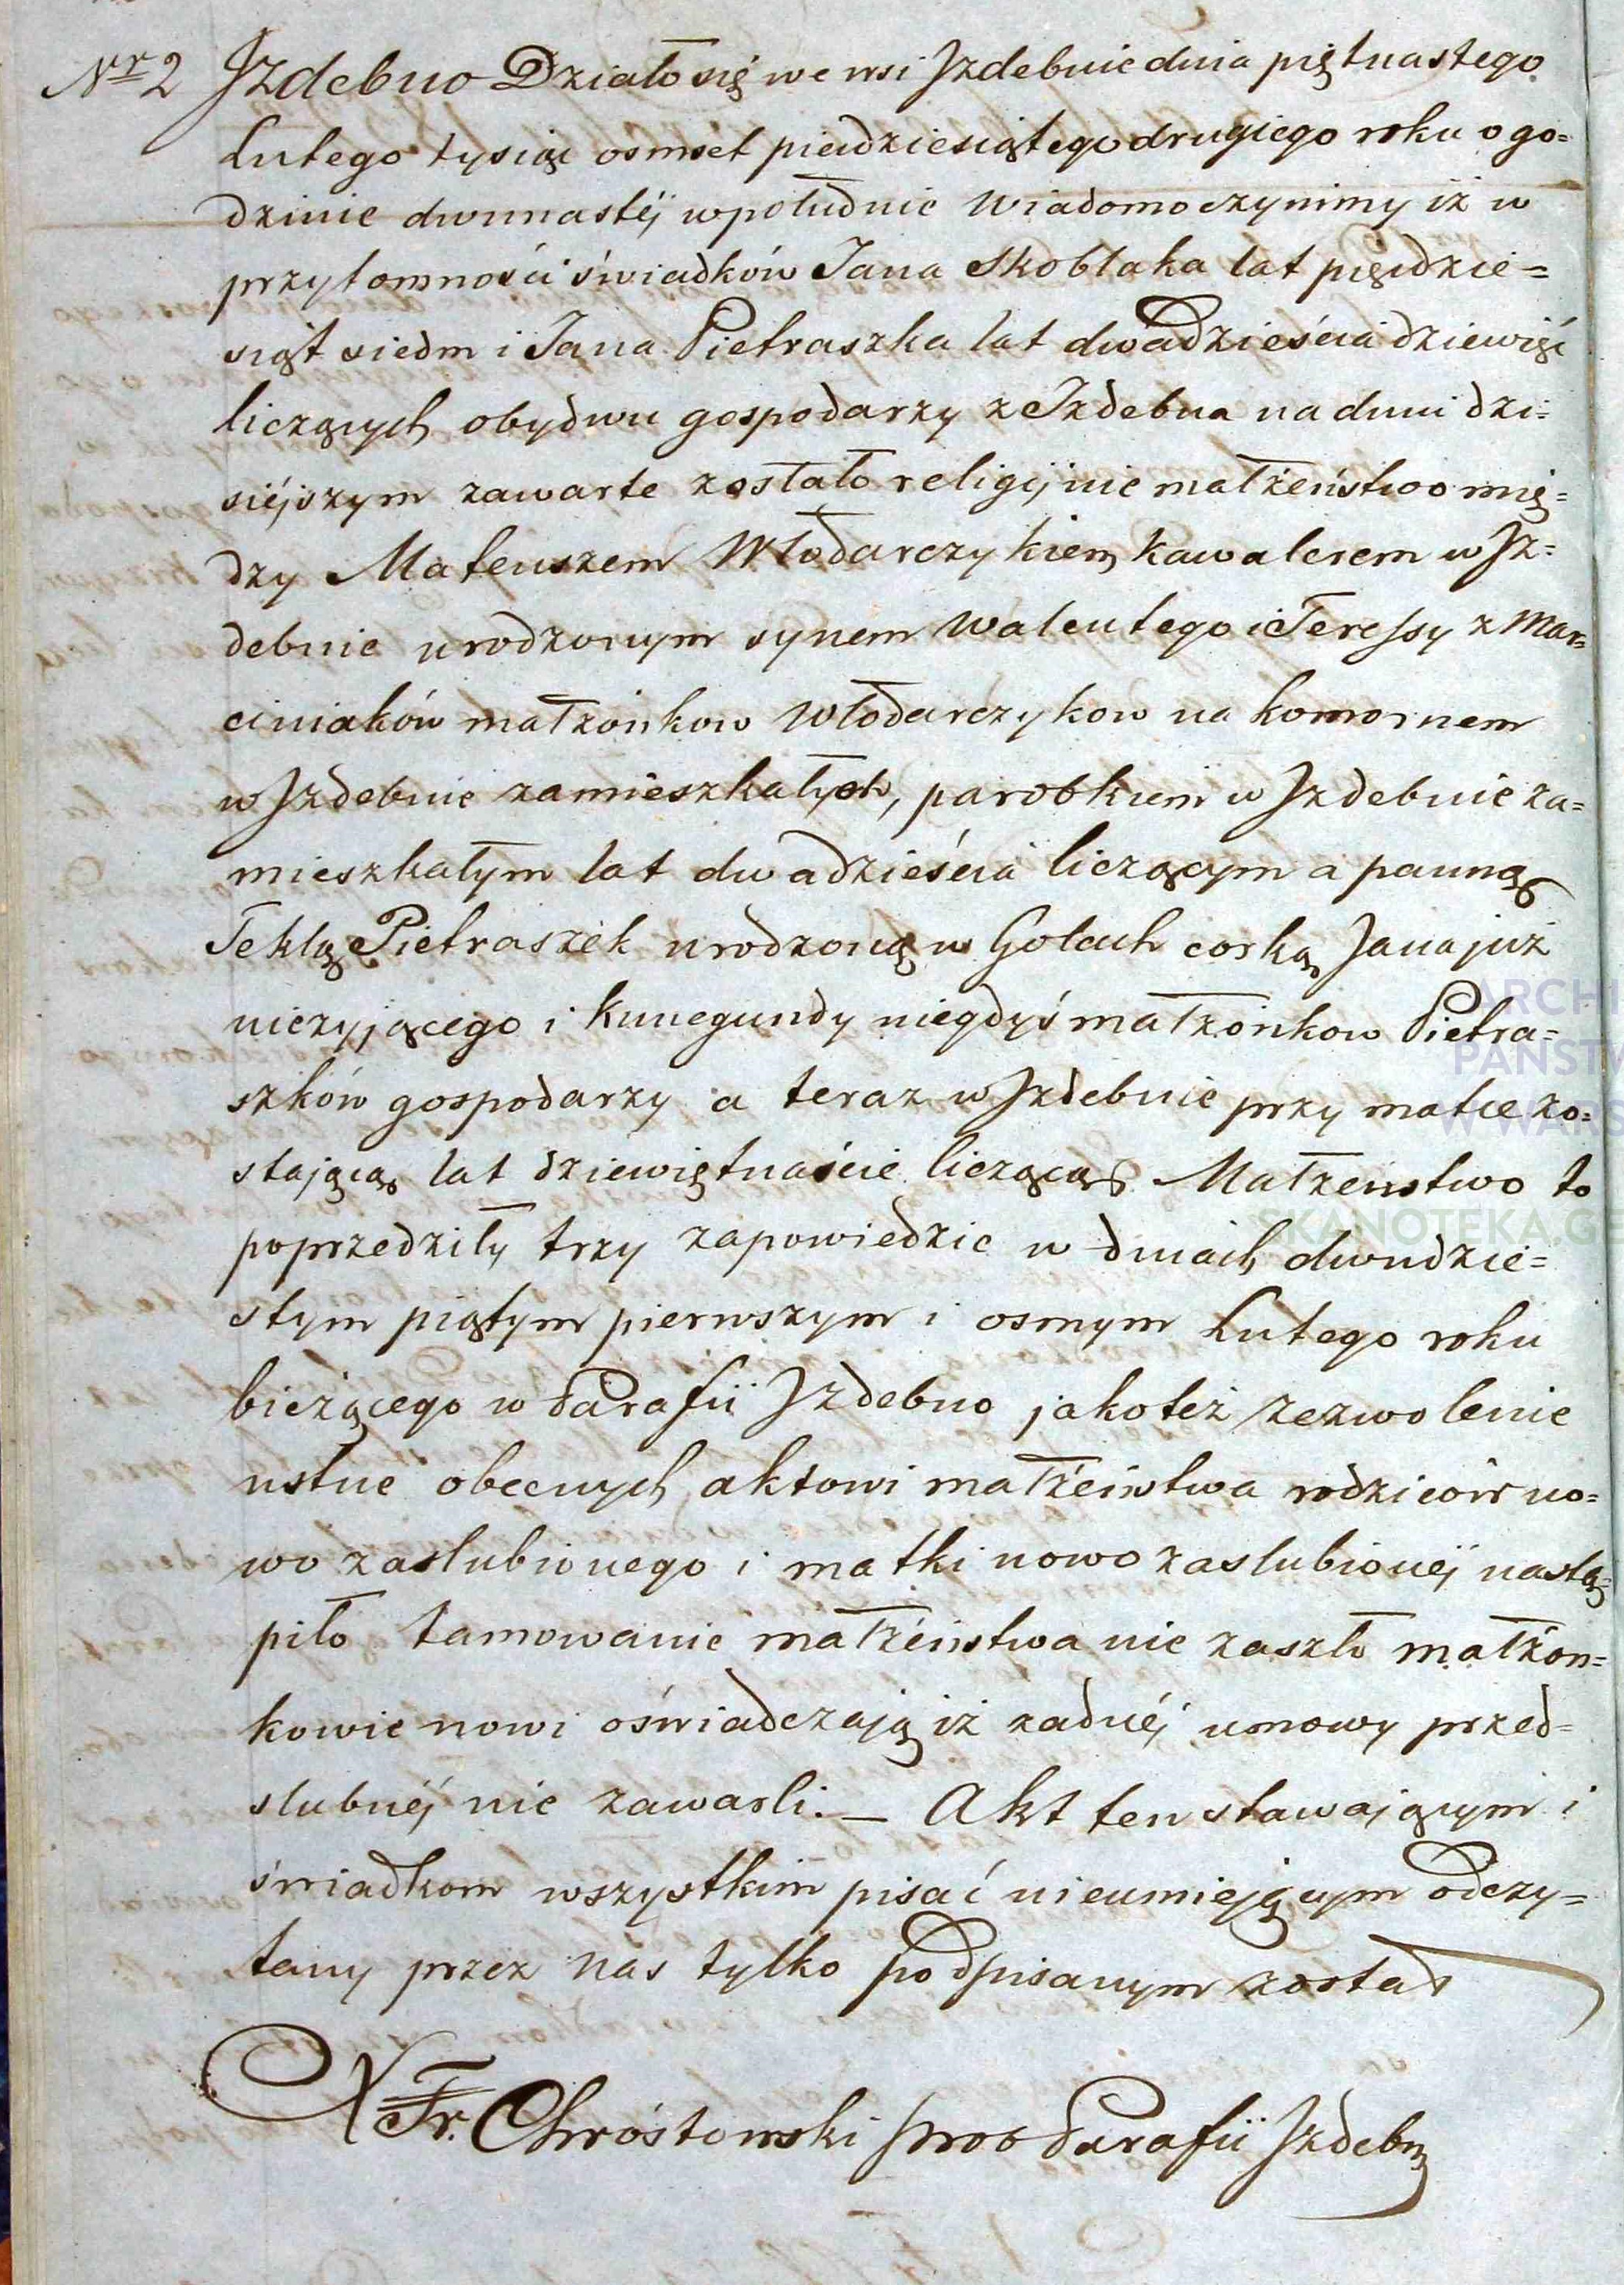 Nr 2 Jzdebno Działo się we wsi Jzdebnie dnia piętnastego
Lutego tysiąc osmset piedziesiątego drugiego roku o go=
dzinie dwunastéj wpołudnie Wiadomo czynimy iż w
przytomności świadków Jana Skoblaka lat pięcdzie=
siąt siedm i Jana Pietraszka lat dwadzieścia dziewięć
liczących obydwu gospodarzy z Jzdebna na dniu dzi=
siéjszym zawarte zostało religijnie małżeństwo mię=
dzy Mateuszem Włodarczykiem kawalerem w Jz=
debnie urodzonym synem Walentego i Teressy z Mar=
ciniaków małżonkow Włodarczykow na komornem
w Jzdebnie zamieszkałych, parobkiem w Jzdebnie za=
mieszkałym lat dwadzieścia liczącym a panną
Teklą Pietraszek urodzoną w Gołach corką Jana już
nieżyjącego i Kunegundy niegdyś małżonkow Pietra=
szków gospodarzy a teraz w Jzdebnie przy matce zo=
stającą lat dziewiętnaście liczącą Małżenstwo to
poprzedziły trzy zapowiedzie w dniach dwudzie=
stym piątym pierwszym i osmym Lutego roku
bieżącego w Parafii Jzdebno jakoteż zezwolenie
ustne obecnych aktowi małżeństwa rodziców no=
wo zaslubionego i matki nowo zaslubionéj nastą=
piło tamowanie małżeństwa nie zaszło małżon=
kowie nowi oświadczają iż zadnéj umowy przed=
slubnéj nie zawarli. — Akt ten stawającym i
świadkom wszystkim pisać nieumiejącym odczy=
tany przez nas tylko podpisanym został
X Fr. Chróstowski prob Parafii Jzdebn
ARCHI
PAŃSTW
W WARS
SKANOTEKA.GE